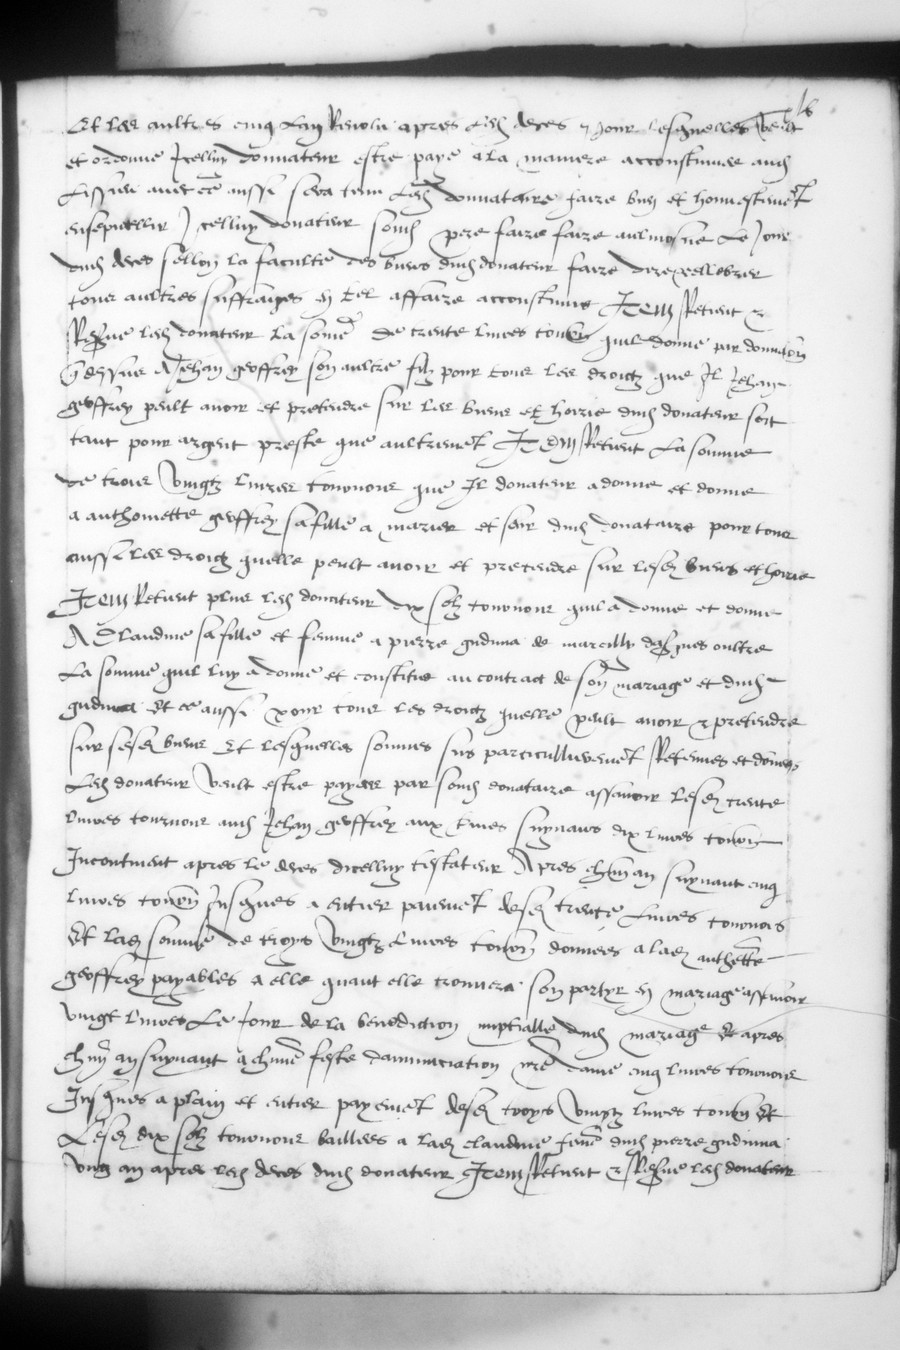 16
Et les aultres cinq lan Revolu apres led deces & jour lesquelles veult
et ordonne Jcelluy donnateur estre paye a la maniere accoustumee aud
Lissieu avec ce aussi sera tenu led donnataire faire bien et honnestemet
ensepvellir Jcelluy donateur sond pere faire faire aulmosne Le Jour
dud deces sellon la faculte des biens dud donateur faire dire cellebrer
tous aultres suffraiges en tel affaire accoustumes Item Retient &
Reserve led donateur la some de trente livres tourn quil donne par donnation
q dessus A Jehan geoffrey son aultre filz pour tous les droictz que Jl Jehan
geoffrey peult avoir et pretendre sur les biens et hoirie dud donateur soit
tant pour argent preste que aultremet Item Retient La somme
de trois vingtz livres tournois que Jl donateur a donne et donne
a anthoinette geoffrey sa fille a marier et seur dud donataire pour tous
aussi les droictz quelle peult avoir et pretendre sur lesd biens et hoirie
Item Retient plus led donateur dix solz tournois quil a donne et donne
A Claudine sa fille et femme a pierre gudima de marcilly oultre
La somme quil luy a donne et constitue au contract de son mariage et dud
gudima Et ce aussi pour tous les droictz quelle peult avoir & pretendre
sur sesd biens Et lesquelles sommes sus particullieremet Retenues et donnees
Led donateur veult estre payees par sond donataire assavoir lesd trente
livres tournois aud Jehan geoffrey aux termes suyvans dix livres tourn
Incontinent apres le deces dicelluy testateur Apres chun an suyvant cinq
livres tourn Jusques a entier payemet desd trente Livres tournois
Et lad somme de troys vingtz Livres tourn donnees a lad anthette
geoffrey payables a elle quant elle trouvera son partyr en mariage assavoir
vingt livres Le Jour de la benediction nuptialle dud mariage Et apres
chun an suyvant a chune feste danunciation nre dame cinq livres tournois
Jusques a plain et entier payemet desd troys vingtz livres tourn Et
Lesd dix solz tournois baillees a lad claudine feme dud pierre gudima
Ung an apres led deces dud donateur Item Retient & Reserve led donateur